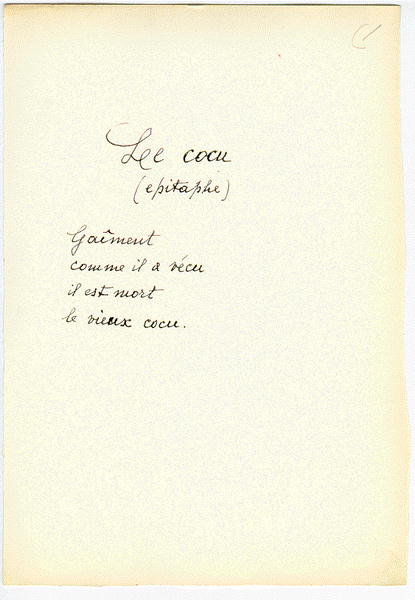 Le cocu
(epitaphe)
Gaîment
comme il a vécu
il est mort
le vieux cocu.